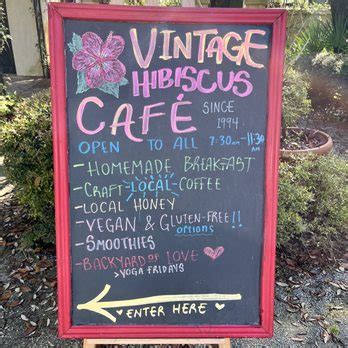 VINTAGE
HIBISCUS
CAFÉ SINCE 1994
OPEN TO ALL 7:30AM-11:30AM
-HOMEMADE BREAKFAST
-CRAFT-LOCAL-COFFEE
-LOCAL HONEY
-VEGAN & GLUTEN-FREE!!
options
-SMOOTHIES
-BACKYARD OF LOVE
>YOGA FRIDAYS
ENTER HERE